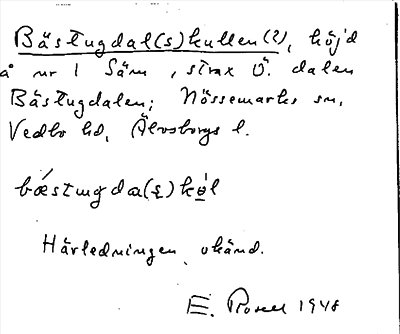 Bästugdal(s)kullen(?), höjd
å nr 1 Säm, strax Ö. dalen
Bästugdalen; Nössemarks sn,
Vedbo hd, Älvsborgs l.
bǽstugda(ʂ)kø̀l
Härledningen okänd.
E. Rosell 1948